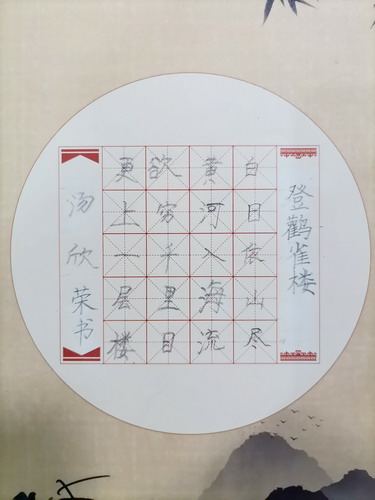 登鹳雀楼
白日依山尽
黄河入海流
欲穷千里目
更上一层楼
汤欣荣书